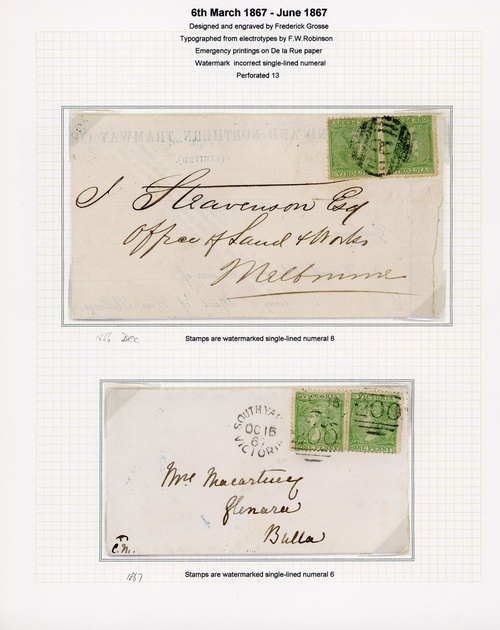 6th March 1867 - June 1867
Designed and engraved by Frederick Grosse
Typographed from electrotypes by F.W.Robinson
Emergency printings on De la Rue paper
Watermark incorrect single-lined numeral
Perforated 13
J Steavenson Esq
Office of Land & Works
Melbourne
Dec
Stamps are watermarked single-lined numeral 8
SOUTH YA
OC 16
67
VICTORIA
VICTORIA
VICTORIA
200
200
ONE PENNY
Mrs Macartney
Glenara
Bulla
C.M.
1867
Stamps are watermarked single-lined numeral 6